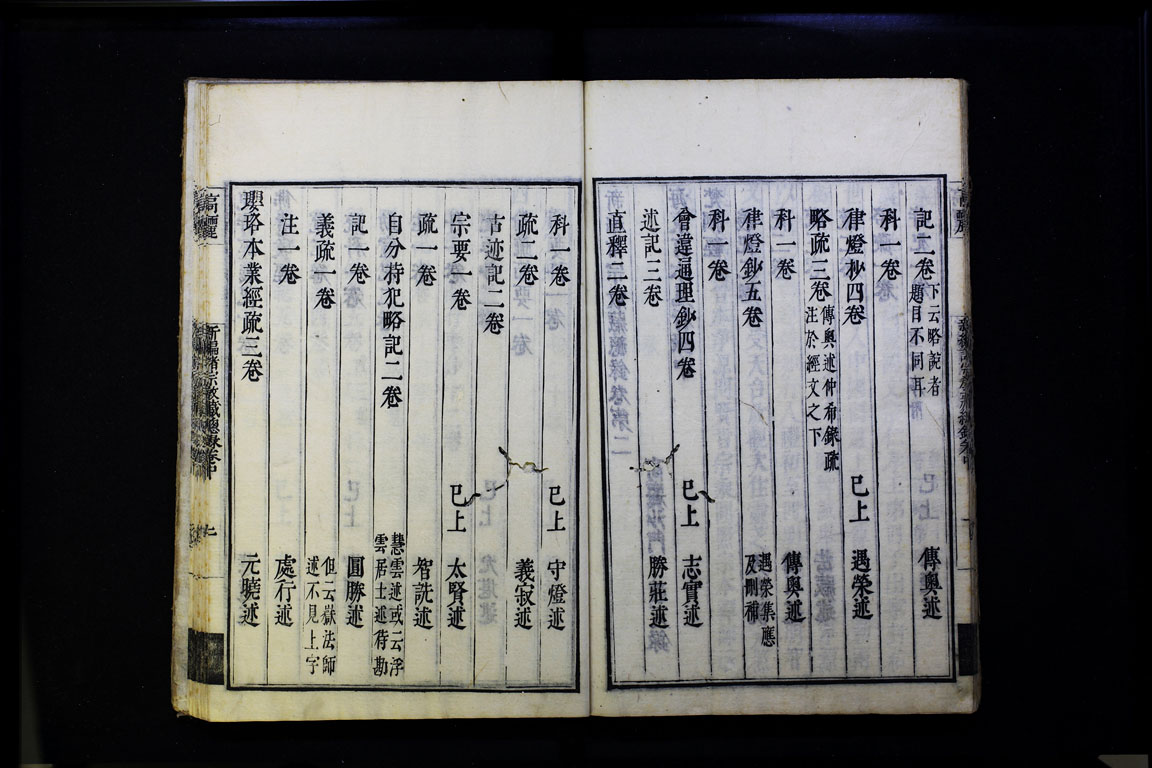 記二卷 下云略說者題目不同耳 傳奧述
科一卷
律燈杪四卷 已上 遇榮述
略疏三卷 傳奧述仲希錄疏注於經文之下
科一卷 傳奧述
律燈鈔五卷 遇榮集應及刪補
科一卷
會違通理鈔四卷 已上 志實述
述記三卷 勝莊述
直釋二卷
科一卷 已上 守燈述
疏二卷 義寂述
古迹記二卷
宗要一卷 已上 太賢述
疏一卷 智詵述
自分持犯略記二卷 慧雲述或云浮雲居士述待勘
記一卷 圓勝述
義疏一卷 但云嶽法師述不見上字
注一卷 處行述
瓔珞本業經疏三卷 元曉述
高麗
新編諸宗教藏總錄卷中
七